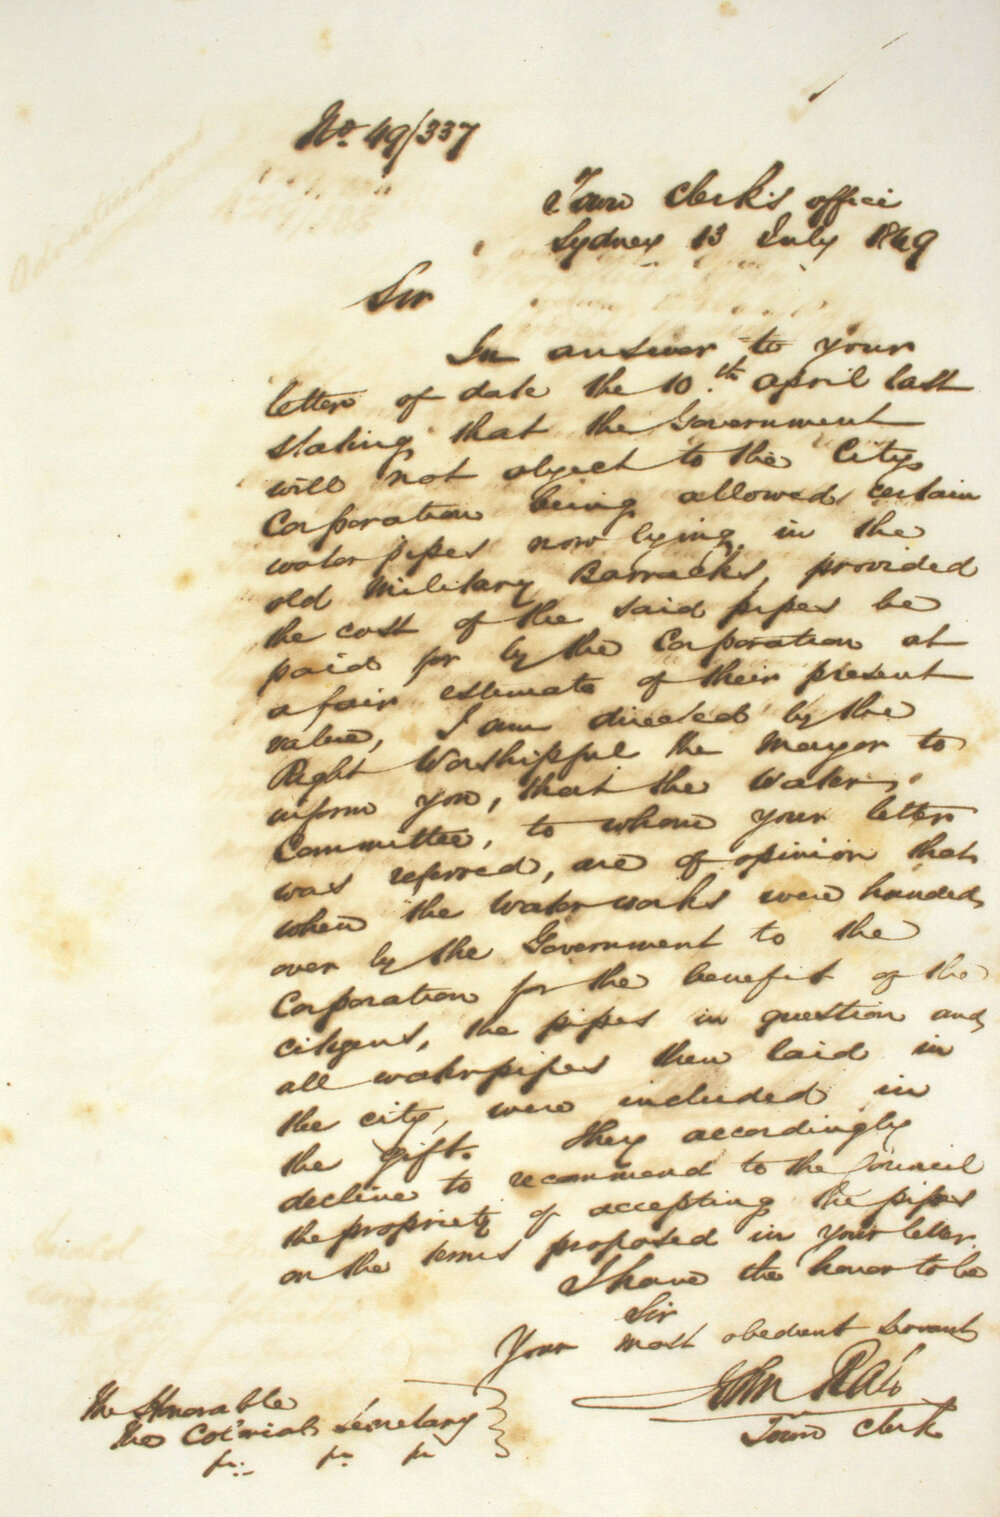 No. 49/337
Town Clerk's office
Sydney 13 July 1849
Sir
In answer to your
letter of date the 10th. April last
stating that the Government
will not object to the City
Corporation being allowed certain
water pipes now lying in the
old Military Barracks, provided
the cost of the said pipes be
paid for by the Corporation at
a fair estimate of their present
value, I am directed by the
Right Worshipful the Mayor to
inform you, that the Water
Committee, to whom your letter
was referred, are of opinion that
when the Water works were handed
over by the Government to the
Corporation for the benefit of the
citizens, the pipes in question and
all waterpipes then laid in
the city, were included in
the gift. They accordingly
decline to recommend to the Council
the propriety of accepting the pipes
on the terms proposed in your letter.
I have the honor to be
Sir
Your most obedient Servant
John Rae
Town Clerk
The Honorable
The Colonial Secretary